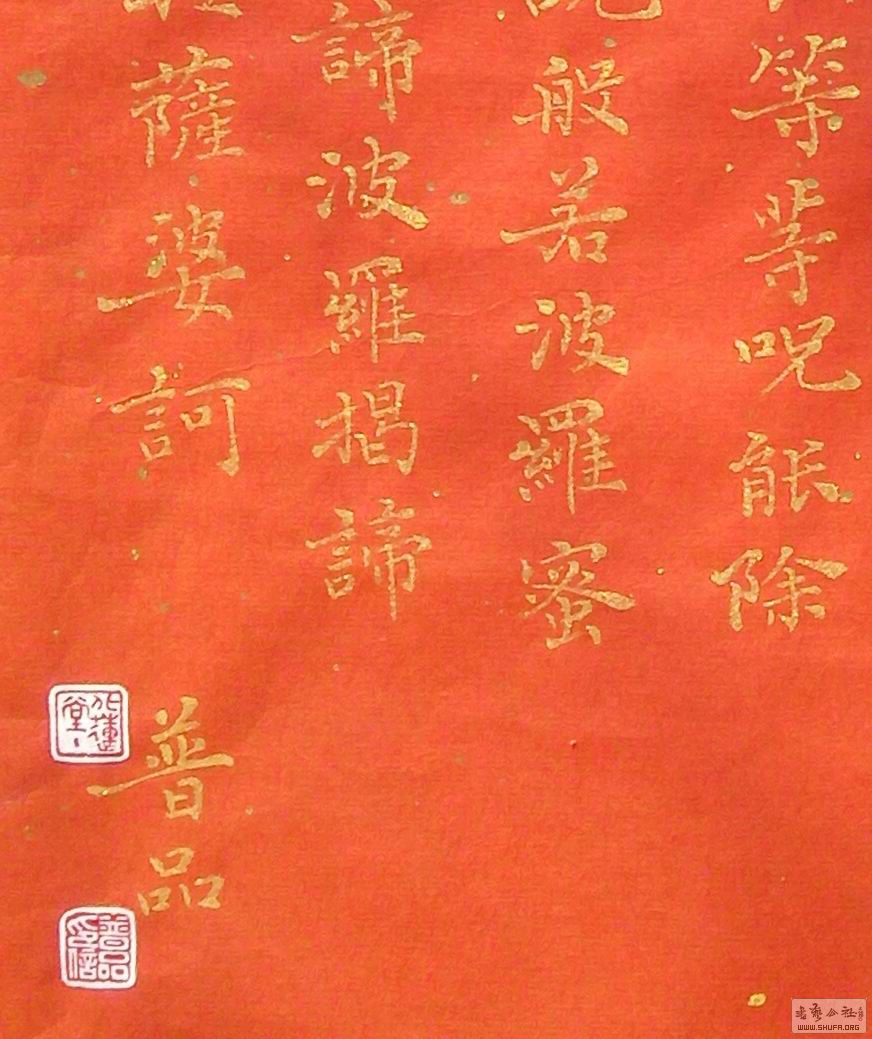 等等呪能除
般若波羅蜜
諦波羅揭諦
薩婆訶
普品
普品印信
WWW.SHUFA.ORG